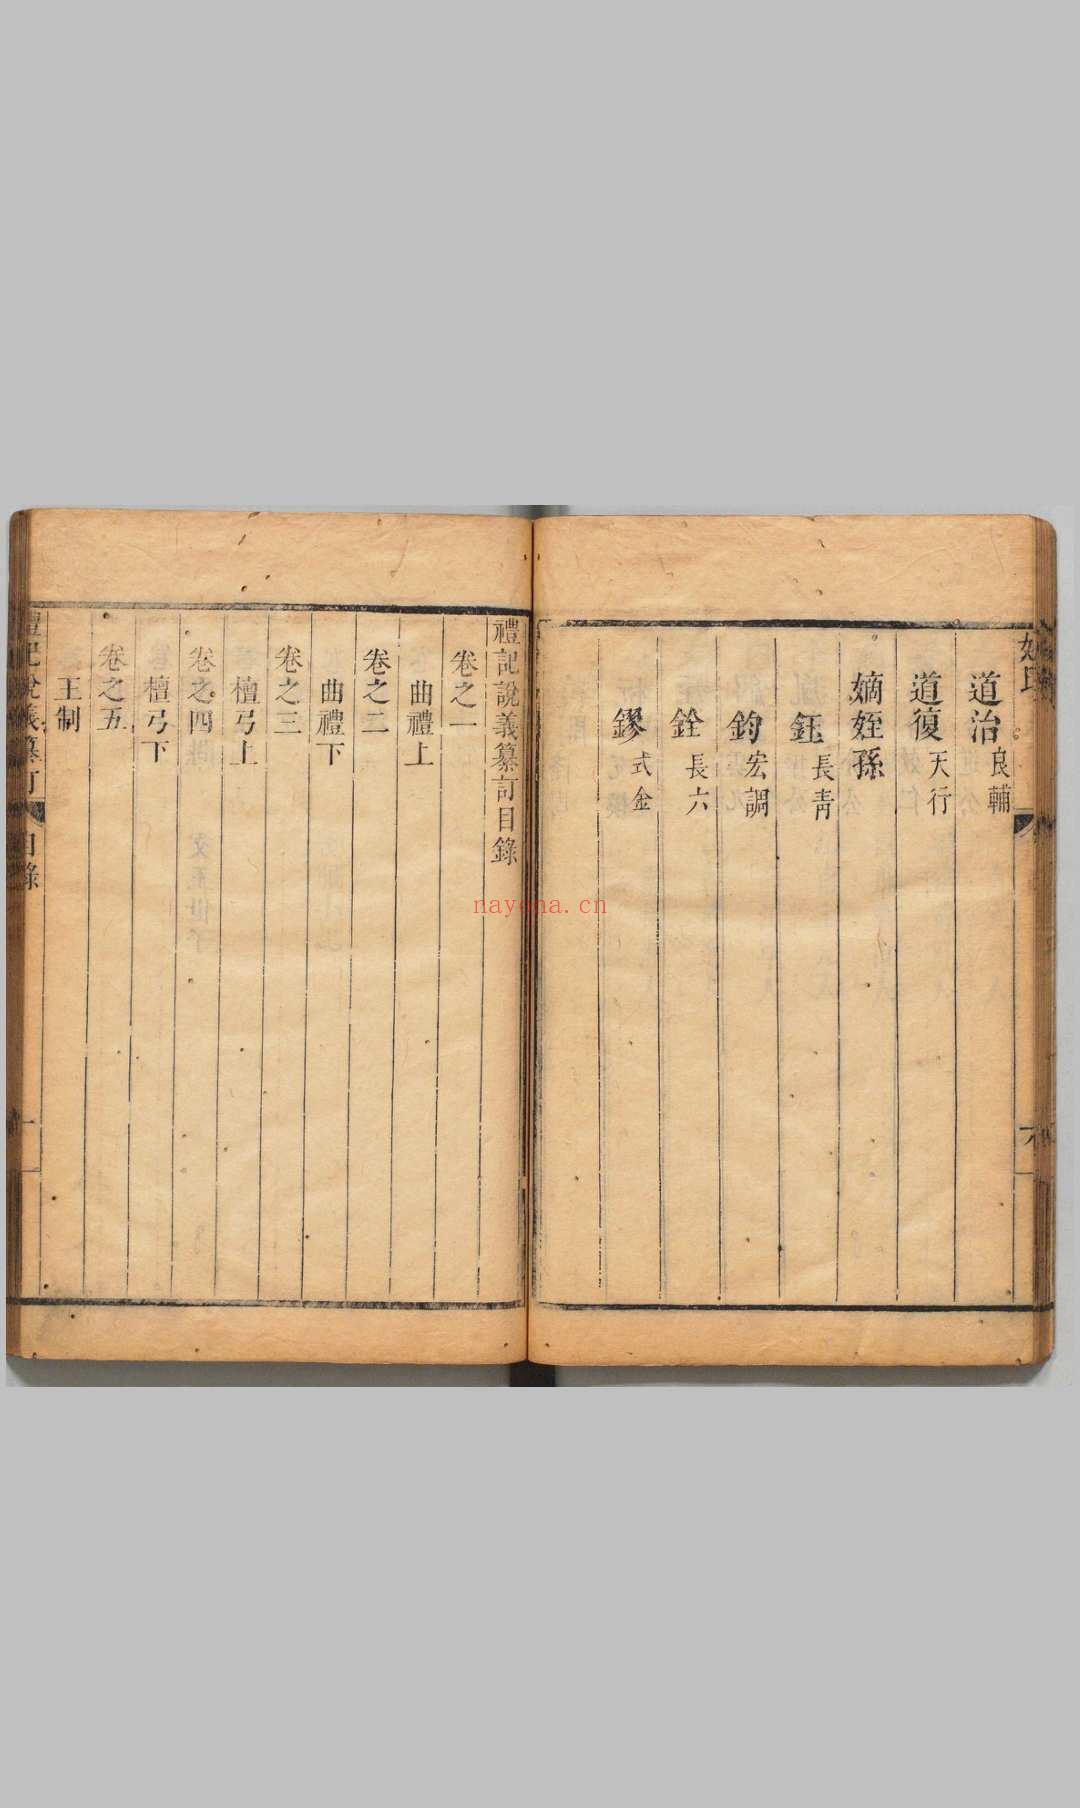 道治 良輔
道復 天行
嫡姪孫
鈺 長青
鈞 宏調
銓 長六
鏐 式金
禮記說義纂訂目錄
卷之一
曲禮上
卷之二
曲禮下
卷之三
檀弓上
卷之四
檀弓下
卷之五
王制
nayona.cn